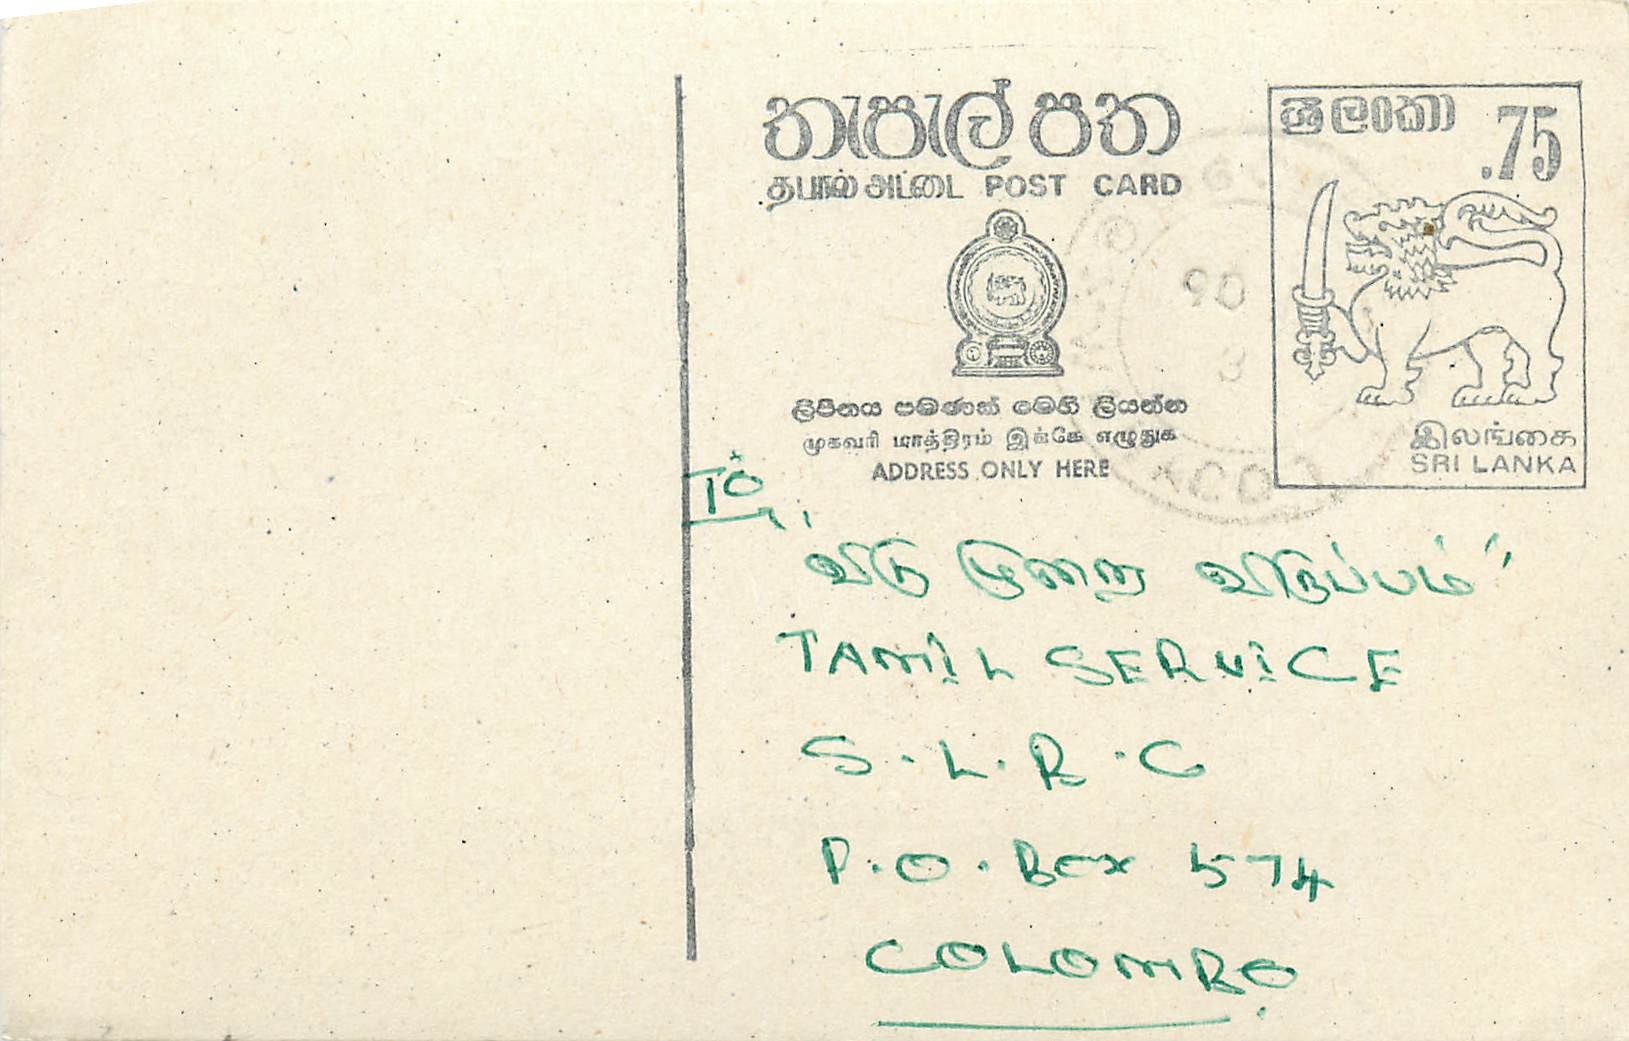 තැපැල් පත
தபால் அட்டை POST CARD
ශ්‍රී ලංකා .75
ලිපිනය පමණක් මෙහි ලියන්න
முகவரி மாத்திரம் இங்கே எழுதுக
ADDRESS ONLY HERE
இலங்கை
SRI LANKA
90
TO
"விடு முறை விருப்பம்"
TAMIL SERVICE
S.L.B.C
P.O. Box 574
COLOMBO.